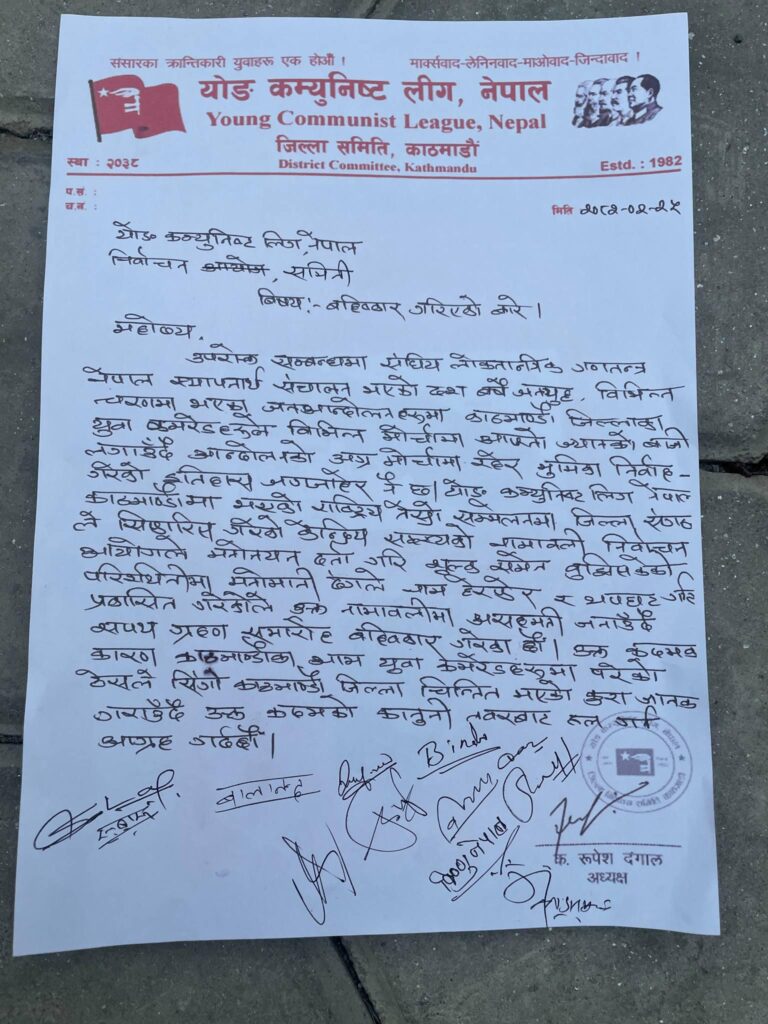 संसारका क्रान्तिकारी युवाहरू एक होऔं ! मार्क्सवाद-लेनिनवाद-माओवाद-जिन्दावाद !
योङ कम्युनिष्ट लीग, नेपाल
Young Communist League, Nepal
जिल्ला समिति, काठमाडौं
District Committee, Kathmandu
स्था : २०३८ Estd. : 1982
प.सं. :
च.नं. :
मिति २०८२-०२-२५
योङ कम्युनिष्ट लिग, नेपाल
निर्वाचन आयोग, समिती
बिषय:- बहिष्कार गरिएको बारे ।
महोदय,
उपरोक्त सम्बन्धमा संघिय लोकतान्त्रिक गणतन्त्र
नेपाल स्थापनार्थ संचालन भएको दश बर्षे जनयुद्ध, विभिन्न
चरणमा भएका जनआन्दोलनहरूमा काठमाण्डौ जिल्लाका
युवा कमरेडहरूले विभिन्न मोर्चामा आफ्नो ज्यानको बाजी
लगाउँदै आन्दोलनको अग्र मोर्चामा रहेर भुमिका निर्वाह
गरेको इतिहास जगजाहेर नै छ। योङ कम्युनिष्ट लिग नेपाल
काठमाण्डौमा भएको राष्ट्रिय सम्मेलनमा जिल्ला
ले सिफारिस गरेको केन्द्रिय सदस्यको नामावली निर्वाचन
आयोगले मनोनयन दर्ता गरि शुल्क समेत बुझिसकेको
परिस्थितीमा मनोमानी ढंगले नाम हेरफेर र थपघट गरि
प्रकासित गरेकोले उक्त नामावलीमा असहमती जनाउँदै
सपथ ग्रहण समारोह बहिष्कार गरेका छौं। उक्त कदमका
कारण काठमाण्डौका आम युवा कमरेडहरूमा परेको
ठेसले सिंगो काठमाण्डौ जिल्ला चिन्तित भएको कुरा जानकारी
गराउँदै उक्त कदमको कानुनी तवरबाट हल गर्न
आग्रह गर्दछौं।
बालानन्द
Bindu
विष्णु नेपाल
क. रुपेश दंगाल
अध्यक्ष